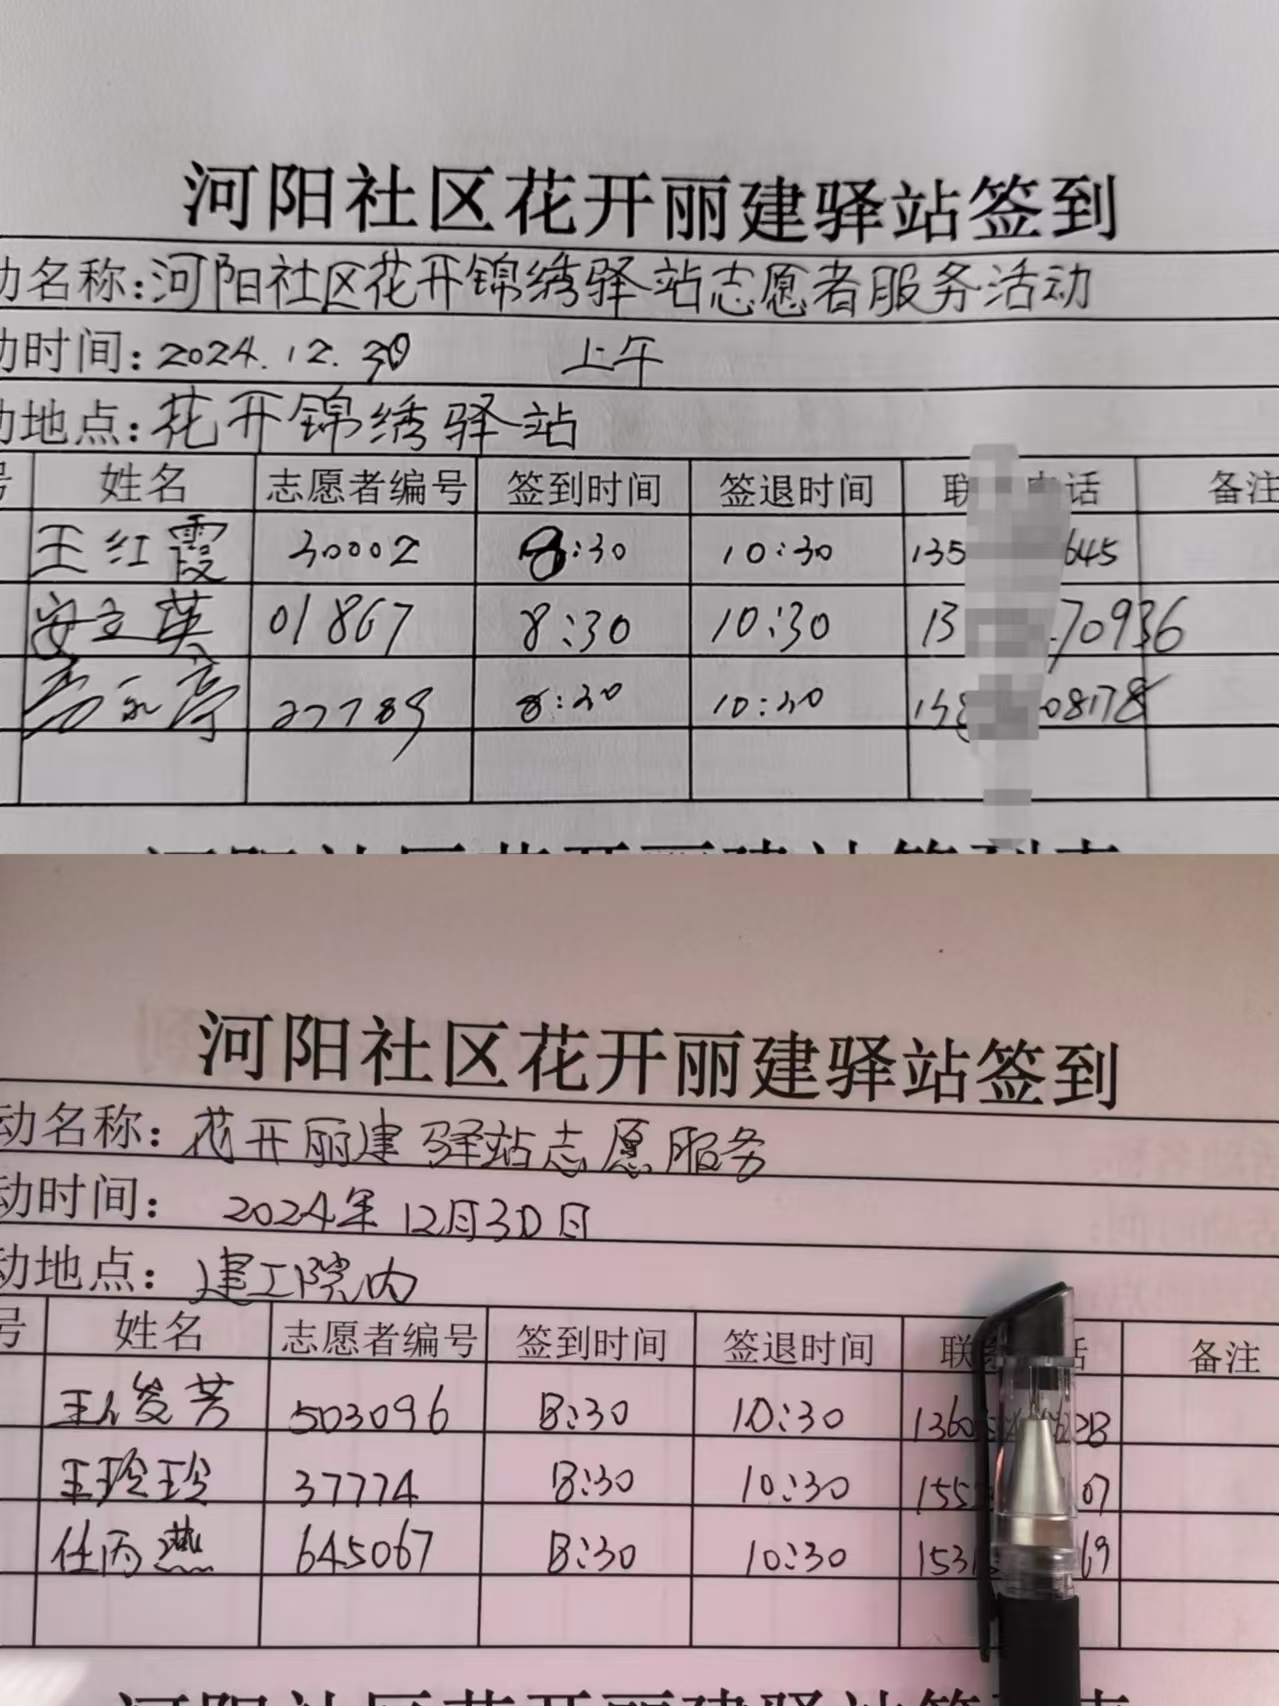 河阳社区花开丽建驿站签到
动名称:河阳社区花开锦绣驿站志愿者服务活动
动时间:2024.12.30 上午
动地点:花开锦绣驿站
号 姓名 志愿者编号 签到时间 签退时间 联 电话 备注
王红霞 30002 8:30 10:30 135 645
安立英 01867 8:30 10:30 13 70936
27789 8:30 10:30 08178
河阳社区花开丽建驿站签到表
河阳社区花开丽建驿站签到
动名称:花开丽建驿站志愿服务
动时间: 2024年12月30日
动地点:建工院内
号 姓名 志愿者编号 签到时间 签退时间 联 话 备注
王俊芳 503096 8:30 10:30 1360
王玲玲 37774 8:30 10:30 155 07
任丙燕 645067 8:30 10:30 153 69
河阳社区花开丽建驿站签